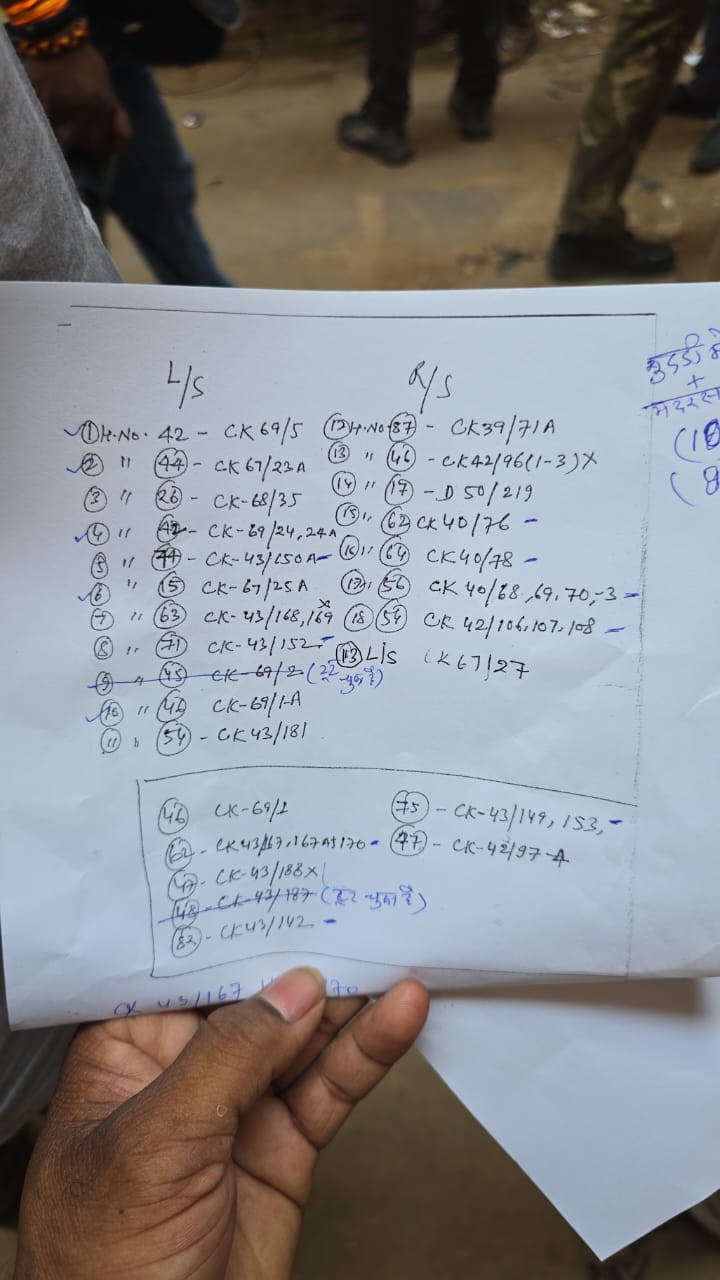 L/S
① H.No. 42 - CK 69/5
② " 44 - CK 67/23A
③ " 26 - CK-68/35
④ " 42 - CK-69/24, 24A
⑤ " 44 - CK-43/150A -
⑥ " 15 CK-67/25A
7 " 63 CK-43/168, 169 x
8 " 71 CK-43/152 -
9 " 45 CK-69/2 (टूट चुका है)
10 " 46 CK-69/1-A
11 " 54 - CK 43/181
R/S
12 H.No 87 - CK39/71A
13 " 46 - CK42/96(1-3) X
14 " 17 - D 50/219
15 " 62 CK 40/76 -
16 " 64 CK 40/78 -
17 " 56 CK 40/68, 69, 70, -3 -
18 54 CK 42/106, 107, 108 -
13 L/S CK 67/27
46 CK-69/2
62 - CK43/167, 167A, 170 -
47 - CK-43/188 X
48 - CK-43/187 (टूट चुका है)
82 - CK43/142 -
75 - CK-43/149, 153, -
77 - CK-42/97-A
CK 43/167 70
+
मदरसा